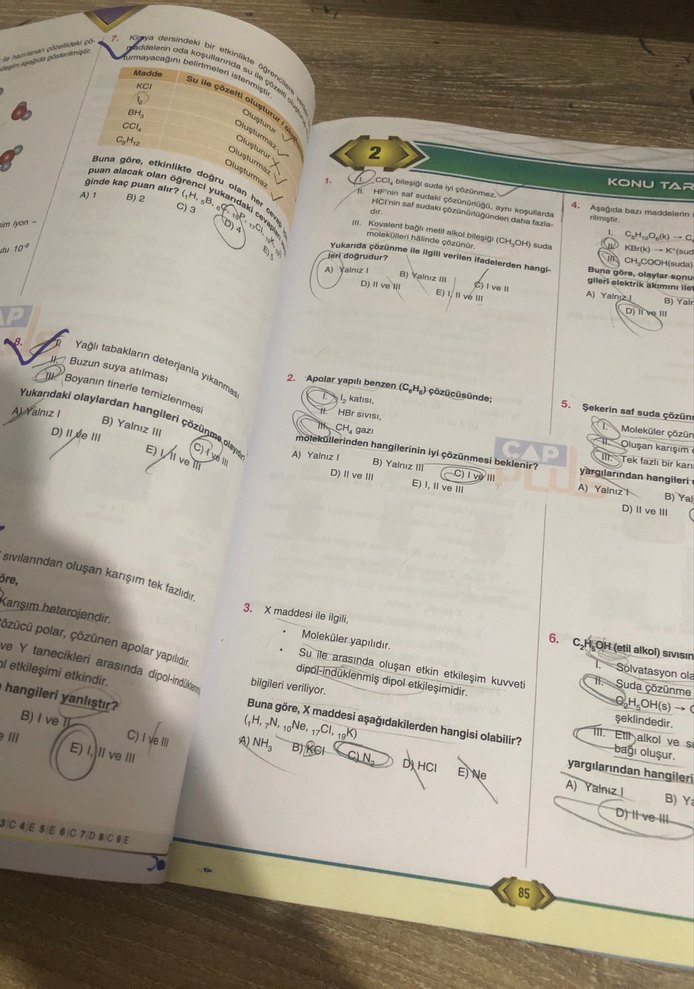 ile hazırlanan çözeltideki çö-
aşağıda gösterilmiştir.
7. Kimya dersindeki bir etkinlikte öğrencilere
maddelerin oda koşullarında su ile çözelti
turmayacağını belirtmeleri istenmiştir.
Madde Su ile çözelti oluşturur /
KCl Oluşturur
I₂ Oluşturmaz
BH₃ Oluşturur
CCl₄ Oluşturmaz
C₅H₁₂ Oluşturmaz
Buna göre, etkinlikte doğru olan her cevap
puan alacak olan öğrenci yukarıdaki
ğinde kaç puan alır? (₁H, ₅B, ₆C, ₁₅P, ₁₇Cl, ₁₉K,
A) 1 B) 2 C) 3 D) 4 E) 5
iyon –
10⁻⁹
8. I. Yağlı tabakların deterjanla yıkanması
II. Buzun suya atılması
III. Boyanın tinerle temizlenmesi
Yukarıdaki olaylardan hangileri çözünme olayıdır?
A) Yalnız I B) Yalnız III C) I ve III
D) II ve III E) I, II ve III
sıvılarından oluşan karışım tek fazlıdır.
öre,
Karışım heterojendir.
özücü polar, çözünen apolar yapılıdır.
ve Y tanecikleri arasında dipol-indüklenm
ol etkileşimi etkindir.
hangileri yanlıştır?
B) I ve II C) I ve III
e III E) I, II ve III
3 C 4 E 5 E 6 C 7 D 8 C 9 E
2
KONU TAR
1. I. CCl₄ bileşiği suda iyi çözünmez.
II. HF'nin saf sudaki çözünürlüğü, aynı koşullarda
HCl'nin saf sudaki çözünürlüğünden daha fazla-
dır.
III. Kovalent bağlı metil alkol bileşiği (CH₃OH) suda
molekülleri hâlinde çözünür.
Yukarıda çözünme ile ilgili verilen ifadelerden hangi-
leri doğrudur?
A) Yalnız I B) Yalnız III C) I ve II
D) II ve III E) I, II ve III
2. Apolar yapılı benzen (C₆H₆) çözücüsünde;
I. I₂ katısı,
II. HBr sıvısı,
III. CH₄ gazı
moleküllerinden hangilerinin iyi çözünmesi beklenir?
A) Yalnız I B) Yalnız III C) I ve III
D) II ve III E) I, II ve III
CAP
PLUS
3. X maddesi ile ilgili,
• Moleküler yapılıdır.
• Su ile arasında oluşan etkin etkileşim kuvveti
dipol-indüklenmiş dipol etkileşimidir.
bilgileri veriliyor.
Buna göre, X maddesi aşağıdakilerden hangisi olabilir?
(₁H, ₇N, ₁₀Ne, ₁₇Cl, ₁₉K)
A) NH₃ B) KCl C) N₂ D) HCl E) Ne
4. Aşağıda bazı maddelerin
rilmiştir.
I. C₆H₁₂O₆(k) → C₆
II. KBr(k) → K⁺(sud
III. CH₃COOH(suda)
Buna göre, olaylar sonu
gileri elektrik akımını ilet
A) Yalnız I B) Yaln
D) II ve III
5. Şekerin saf suda çözün
I. Moleküler çözün
II. Oluşan karışım
III. Tek fazlı bir karı
yargılarından hangileri
A) Yalnız I B) Yal
D) II ve III
6. C₂H₅OH (etil alkol) sıvısın
I. Solvatasyon ola
II. Suda çözünme
C₂H₅OH(s) → C
şeklindedir.
III. Etil alkol ve su
bağı oluşur.
yargılarından hangileri
A) Yalnız I B) Ya
D) II ve III
85